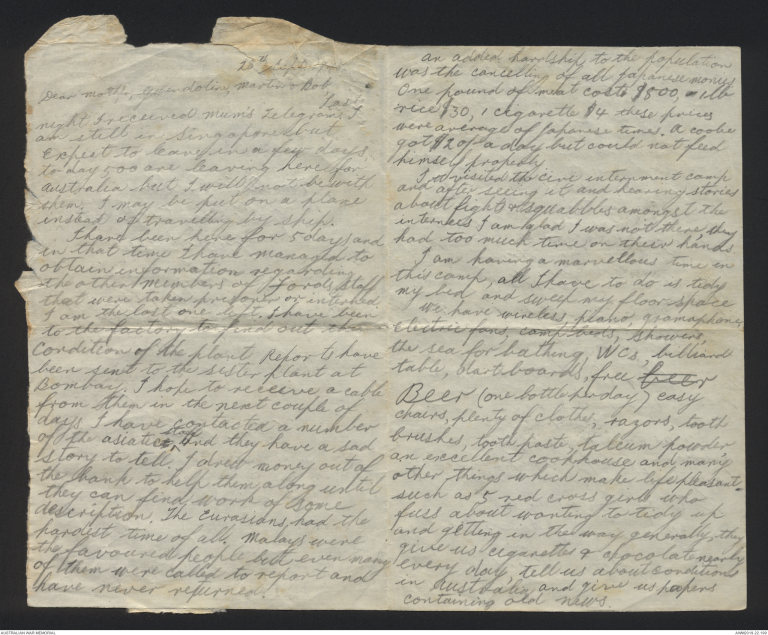 20th Sept
Dear mother, Gwendoline, Martin & Bob
Last
night I received Mum's Telegram, I
am still in Singapore but
Expect to leave in a few days,
to day 500 are leaving here for
Australia but I will not be with
them. I may be put on a plane
instead of traveling by ship.
I have been here for 5 days and
in that time I have managed to
obtain information regarding
the other members of Fords Staff
that were taken prisoner or interned
I am the last one left. I have been
to the factory to find out the
condition of the plant. Reports have
been sent to the sister plant at
Bombay. I hope to receive a cable
from them in the next couple of
days. I have contacted a number
of the asiatic staff, and they have a sad
story to tell. I drew money out of
the bank to help them along until
they can find work of some
description. The Eurasians had the
hardist time of all. Malays were
the favoured people but even many
of them were called to report and
have never returned.
an added hardship to the population
was the cancelling of all Japanese money
One pound of meat costs $800, 1 lb
rice $30, 1 cigarette $4 these prices
were average of Japanese times. A coolie
got $2 of a day but could not feed
himself properly
I revisited the civi internment camp
and after seeing it and hearing stories
about fights & squabbles amongst the
internees I am glad I was not there they
had too much time on their hands
I am having a marvellous time in
this camp, all I have to do is tidy
my bed and sweep my floor space
We have wireless, piano, gramaphone,
Electric fans, camp beds, Showers,
the sea for bathing, WCs, billiard
table, dart boards, free beer
Beer (one bottle per day) easy
chairs, plenty of clothes, razors, tooth
brushes, tooth paste, talcum powder
an excellent cookhouse and many
other things which make life pleasant
such as 5 red cross girls who
fuss about wanting to tidy up
and getting in the way generally, they
give us cigarettes & chocolate nearly
every day, tell us about conditions
in Australia, and give us papers
containing old news.
AUSTRALIAN WAR MEMORIAL